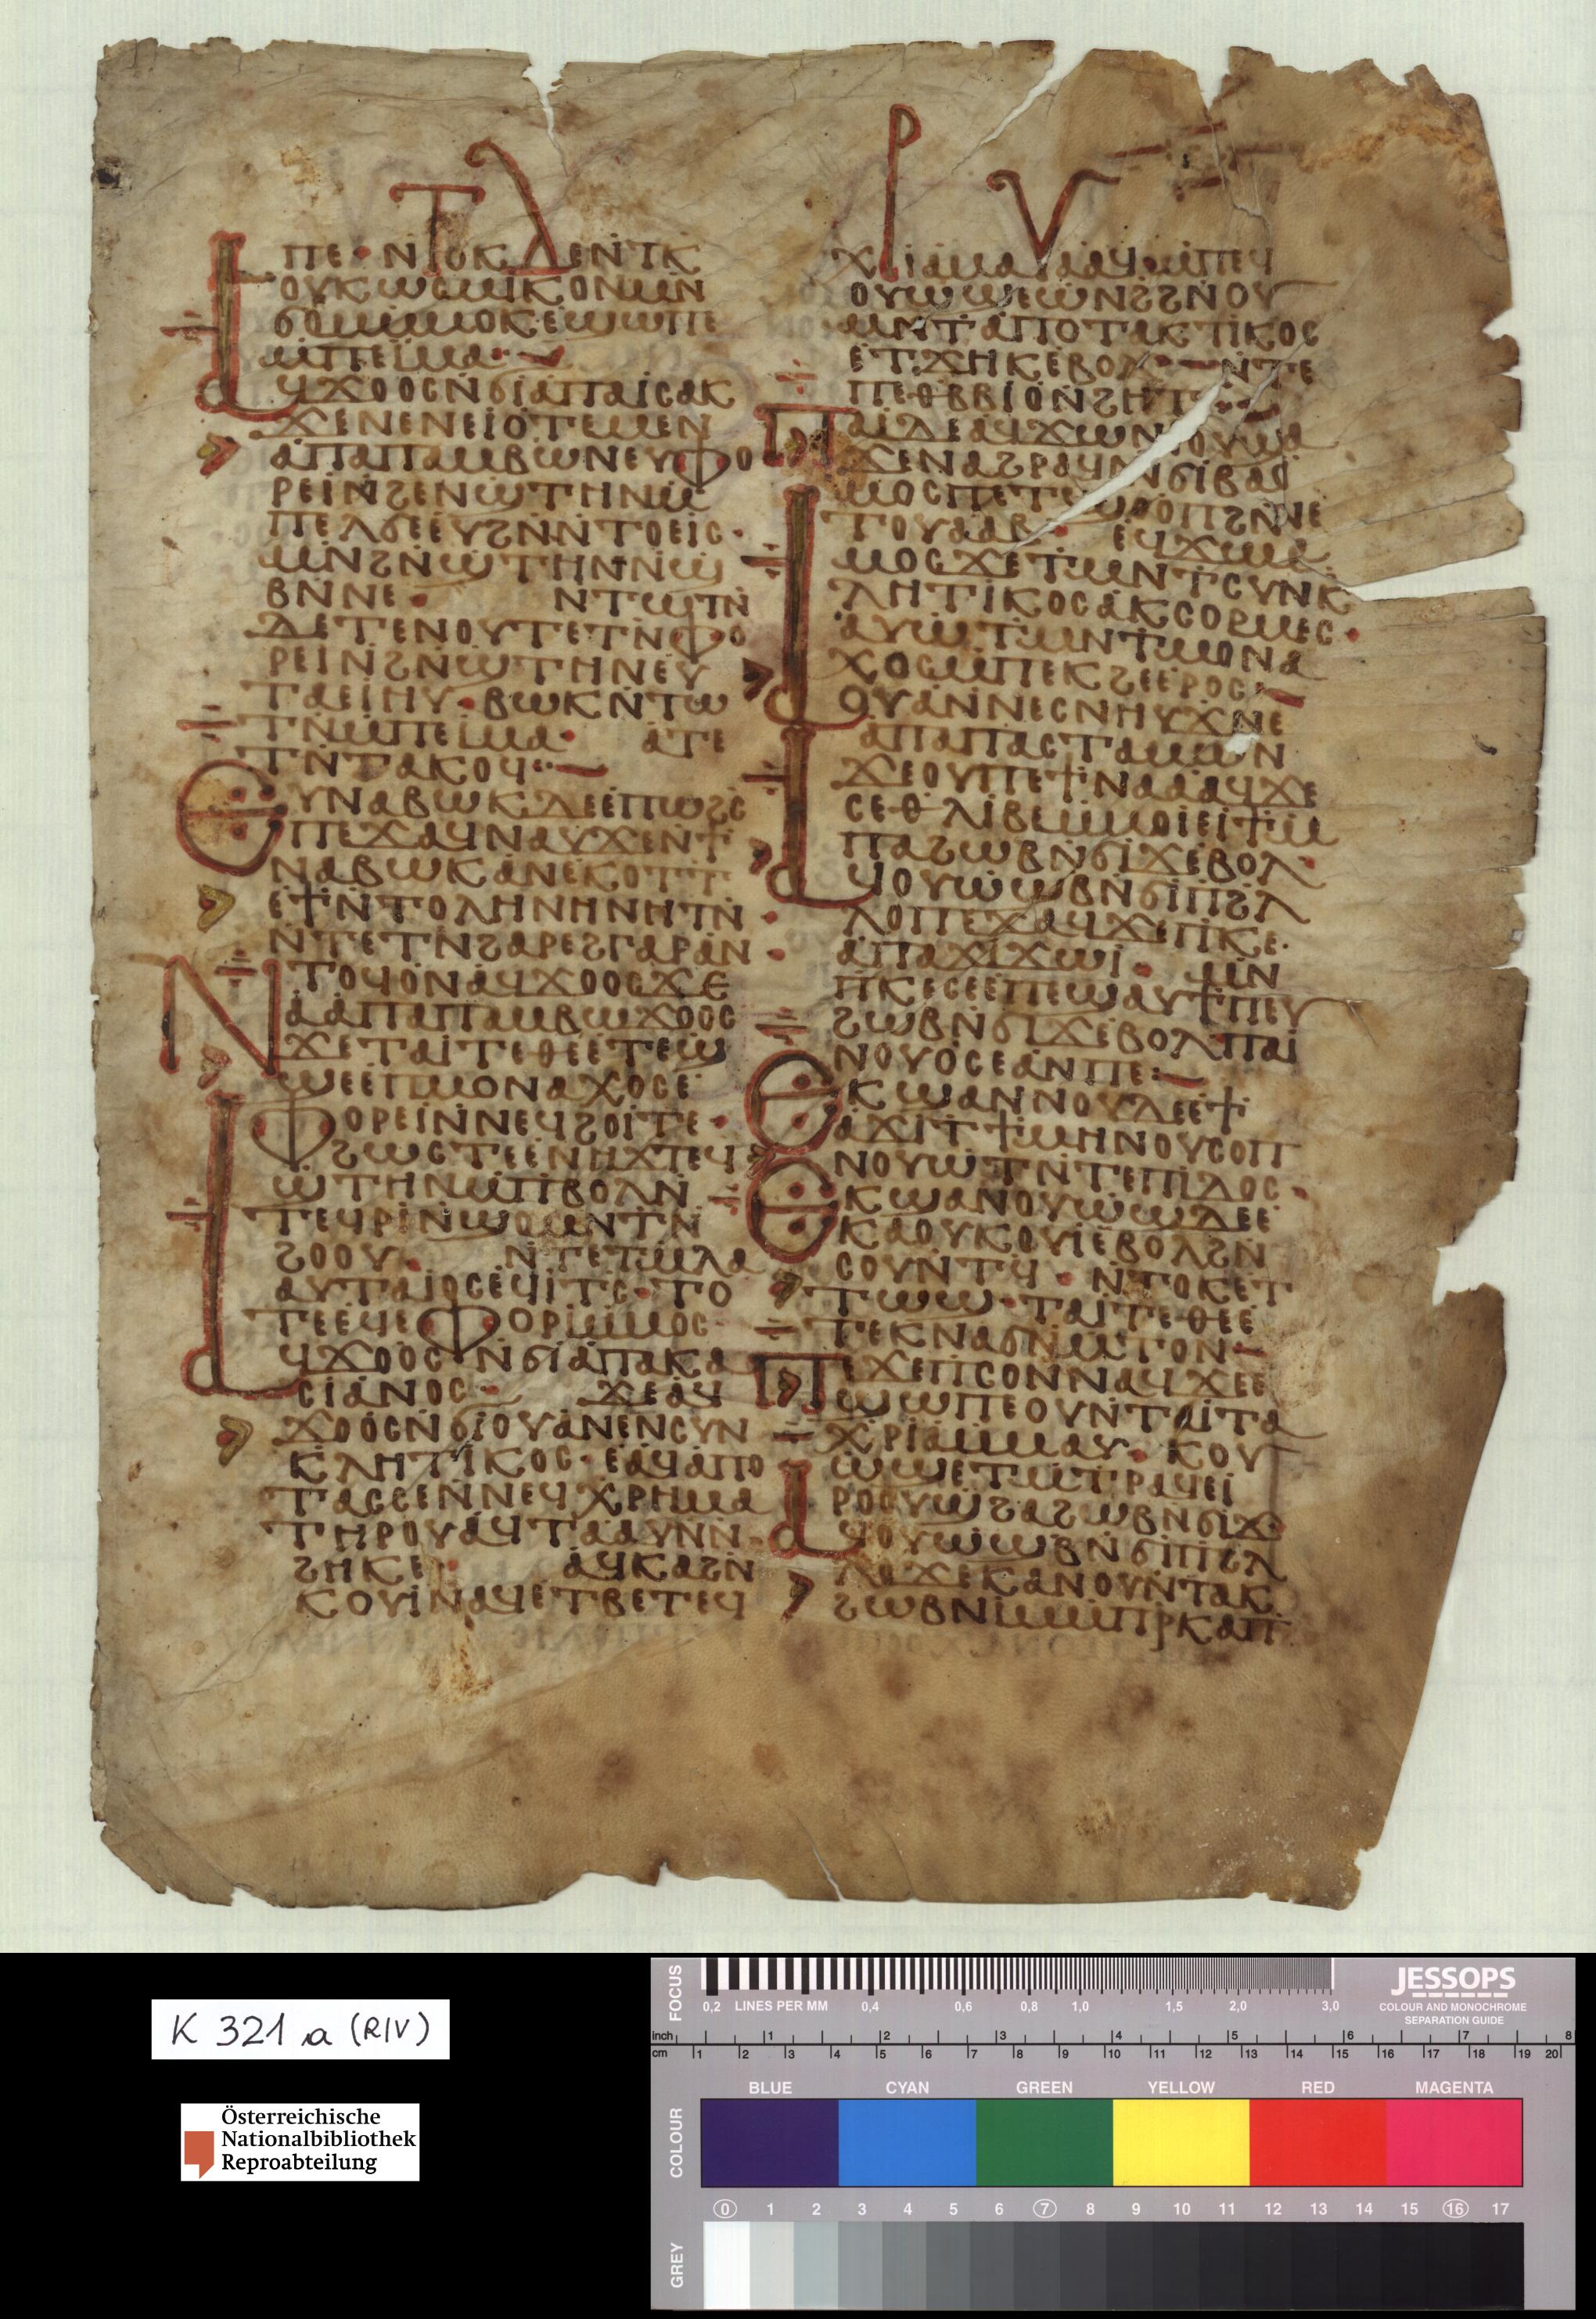 ⲠⲈ·ⲚⲦⲞⲔⲆⲈⲚⲦⲔ
ⲞⲨⲔⲰⲤⲘⲓⲔⲞⲚⲘⲚ
ϭⲞⲘⲘⲘⲞⲔⲈϢⲰⲠⲈ
ⲘⲠⲈⲓⲘⲀ·
ⲀϤϪⲞⲞⲤⲚϭⲓⲀⲠⲀⲓⲤⲀⲔ
ϪⲈⲚⲈⲚⲈⲓⲞⲦⲈⲘⲈⲚ
ⲀⲠⲀⲠⲀⲘⲂⲰⲚⲈⲨⲪⲞ
ⲢⲈⲓⲚϨⲈⲚϢⲦⲎⲚⲘ
ⲠⲈⲖϭⲈⲈⲨϨⲚⲚⲦⲞⲈⲓⲤ·
ⲘⲚϨⲚϢⲦⲎⲚⲚϢ
ⲂⲚⲚⲈ· ⲚⲦⲰⲦⲚ
ⲆⲈⲦⲈⲚⲞⲨⲦⲈⲦⲚⲪⲞ
ⲢⲈⲓⲚϨⲚϢⲦⲎⲚⲈⲨ
ⲦⲀⲈⲓⲎⲨ·ⲂⲰⲔⲚⲦⲰ
ⲦⲚⲘⲠⲈⲓⲘⲀ· ⲀⲦⲈ
ⲦⲚⲦⲀⲔⲞϤ·
ⲈⲨⲚⲀⲂⲰⲔⲆⲈⲈⲠⲰϨⲤ
ⲠⲈϪⲀϤⲚⲀⲨϪⲈⲚϮ
ⲚⲀⲂⲰⲔⲀⲚⲈⲔⲞⲦⲦ
ⲈϮⲚⲦⲞⲖⲎⲚⲎⲚⲎⲦⲚ·
ⲚⲦⲈⲦⲚϨⲀⲢⲈϨⲄⲀⲢⲀⲚ·
ⲚⲦⲞϤⲞⲚⲀϤϪⲞⲞⲤϪⲈ
ⲀⲀⲠⲀⲠⲀⲘⲂⲰϪⲞⲞⲤ
ϪⲈⲦⲀⲓⲦⲈⲐⲈⲈⲦⲈϢ
ϢⲈⲈⲠⲘⲞⲚⲀⲬⲞⲤⲈ
ⲪⲞⲢⲈⲓⲚⲚⲈϤϨⲞⲓⲦⲈ·
ϨⲰⲤⲦⲈⲈⲚⲎϪⲦⲈϤ
ϢⲦⲎⲚⲘⲠⲂⲞⲖⲚ
ⲦⲈϤⲢⲓⲚϢⲞⲘⲚⲦⲚ
ϨⲞⲞⲨ· ⲚⲦⲈⲦⲘⲖⲀ
ⲀⲨⲦⲀⲓⲞⲤⲈϤⲓⲦⲤ·ⲦⲞ
ⲦⲈⲈϤⲈⲪⲞⲢⲓⲘⲘⲞⲤ
ⲀϤϪⲞⲞⲤ·ⲚϭⲓⲀⲠⲀⲔⲀ
ⲤⲓⲀⲚⲞⲤ· ϪⲈⲀϤ
ϪⲞⲞⲤⲚϭⲓⲞⲨⲀⲚⲈⲚⲤⲨⲚ
ⲔⲖⲎⲦⲓⲔⲞⲤ·ⲈⲀϤⲀⲠⲞ
ⲦⲀⲤⲤⲈⲚⲚⲈϤⲬⲢⲎⲘⲀ
ⲦⲎⲢⲞⲨⲀϤⲦⲀⲀⲨⲚⲚ
ϨⲎⲔⲈ· ⲀϤⲔⲀϨⲚ
ⲔⲞⲨⲓⲚⲀϤⲈⲦⲂⲈⲦⲈϤ
ⲢⲨ
ⲬⲢⲓⲀⲘⲀⲨⲀⲀϤ·ⲘⲠⲈϤ
ⲞⲨⲰϢⲈⲰⲚϨϨⲚⲞⲨ
ⲘⲚⲦⲀⲠⲞⲦⲀⲔⲦⲓⲔⲞⲤ
ⲈⲦϪⲎⲔⲈⲂⲞⲖ·ⲚⲦⲈ
ⲠⲈⲐⲂⲂⲓⲞⲚϨⲎⲦ·
ⲠⲀⲓⲆⲈⲀϤϪⲰⲚⲞⲨϢⲀ
ϪⲈⲚⲀϨⲢⲀϤⲚϭⲓⲂⲀⲤ
ⲘⲞⲤⲠⲈⲦϢⲞⲞⲠϨⲚⲚⲈ
ⲦⲞⲨⲀⲀⲂ· ⲈϤϪⲰⲘ
ⲘⲞⲤϪⲈⲦⲘⲚⲦⲤⲨⲚⲔ
ⲖⲎⲦⲓⲔⲞⲤⲀⲔⲤⲞⲢⲘⲈⲤ·
ⲀⲨⲰⲦⲘⲚⲦⲘⲞⲚⲀ
ⲬⲞⲤⲘⲠⲈⲔϨⲈⲈⲢⲞⲤ·
ⲀⲞⲨⲀⲚⲚⲈⲤⲚⲎⲨϪⲚⲈ
ⲀⲠⲀⲠⲀⲤⲦⲀⲘⲰⲚ
ϪⲈⲞⲨⲠⲈϮⲚⲀⲀⲀϤϪⲈ
ⲤⲈⲐⲖⲓⲂⲈⲘⲘⲞⲓⲈⲓϮⲘ
ⲠⲀϨⲰⲂⲚϭⲓϪⲈⲂⲞⲖ·
ⲀϤⲞⲨⲰϢⲂⲚϭⲓⲠϨⲖ
ⲖⲞⲠⲈϪⲀϤϪⲈⲠⲔⲈ
ⲀⲠⲀϪⲓϪⲰⲓ· ⲘⲚ
ⲠⲔⲈⲤⲈⲈⲠⲈϢⲀⲨϮⲠⲈⲨ
ϨⲰⲂⲚϭⲓϪⲈⲂⲞⲖⲠⲀⲓ
ⲚⲞⲨⲞⲤⲈⲀⲚⲠⲈ:
ⲈⲔϢⲀⲚⲚⲞⲨⲆⲈⲈϮ
ⲀϪⲓⲦϮⲘⲎⲚⲞⲨⲤⲞⲠ
ⲚⲞⲨⲰⲦⲚⲦⲈⲠⲓⲆⲞⲤ·
ⲈⲔϢⲀⲚⲞⲨⲰϢⲆⲈⲈ
ⲔⲀⲞⲨⲔⲞⲨⲓⲈⲂⲞⲖϨⲚ
ⲤⲞⲨⲚⲦϤ·ⲚⲦⲞⲔⲈⲦ
ⲦⲰϢ·ⲦⲀⲓⲦⲈⲐⲈⲈ
ⲦⲈⲔⲚⲀϭⲚⲘⲦⲞⲚ
ⲠⲈϪⲈⲠⲤⲞⲚⲚⲀϤϪⲈⲈ
ϢⲰⲠⲈⲞⲨⲚⲦⲀⲓⲦⲀ
ⲬⲢⲓⲀⲘⲘⲀⲨ· ⲔⲞⲨ
ⲰϢⲈⲦⲘⲦⲢⲀϤⲈⲓ
ⲢⲞⲞⲨϢϨⲀϨⲰⲂⲚϭⲓϪ
ⲀϤⲞⲨⲰϢⲂⲚϭⲓⲠϨⲖ
ⲖⲞϪⲈⲔⲀⲚⲞⲨⲚⲦⲀⲔ
ϨⲰⲂⲚⲓⲘⲘⲠⲢⲔⲀⲠ
K 321 a (R/V)
Österreichische
Nationalbibliothek
Reproabteilung
FOCUS
0,2 LINES PER MM 0,4 0,6 0,8 1,0 1,5 2,0 3,0
JESSOPS
COLOUR AND MONOCHROME
SEPARATION GUIDE
inch 1 2 3 4 5 6 7 8
cm 1 2 3 4 5 6 7 8 9 10 11 12 13 14 15 16 17 18 19 20
COLOUR
BLUE CYAN GREEN YELLOW RED MAGENTA
0 1 2 3 4 5 6 7 8 9 10 11 12 13 14 15 16 17
GREY